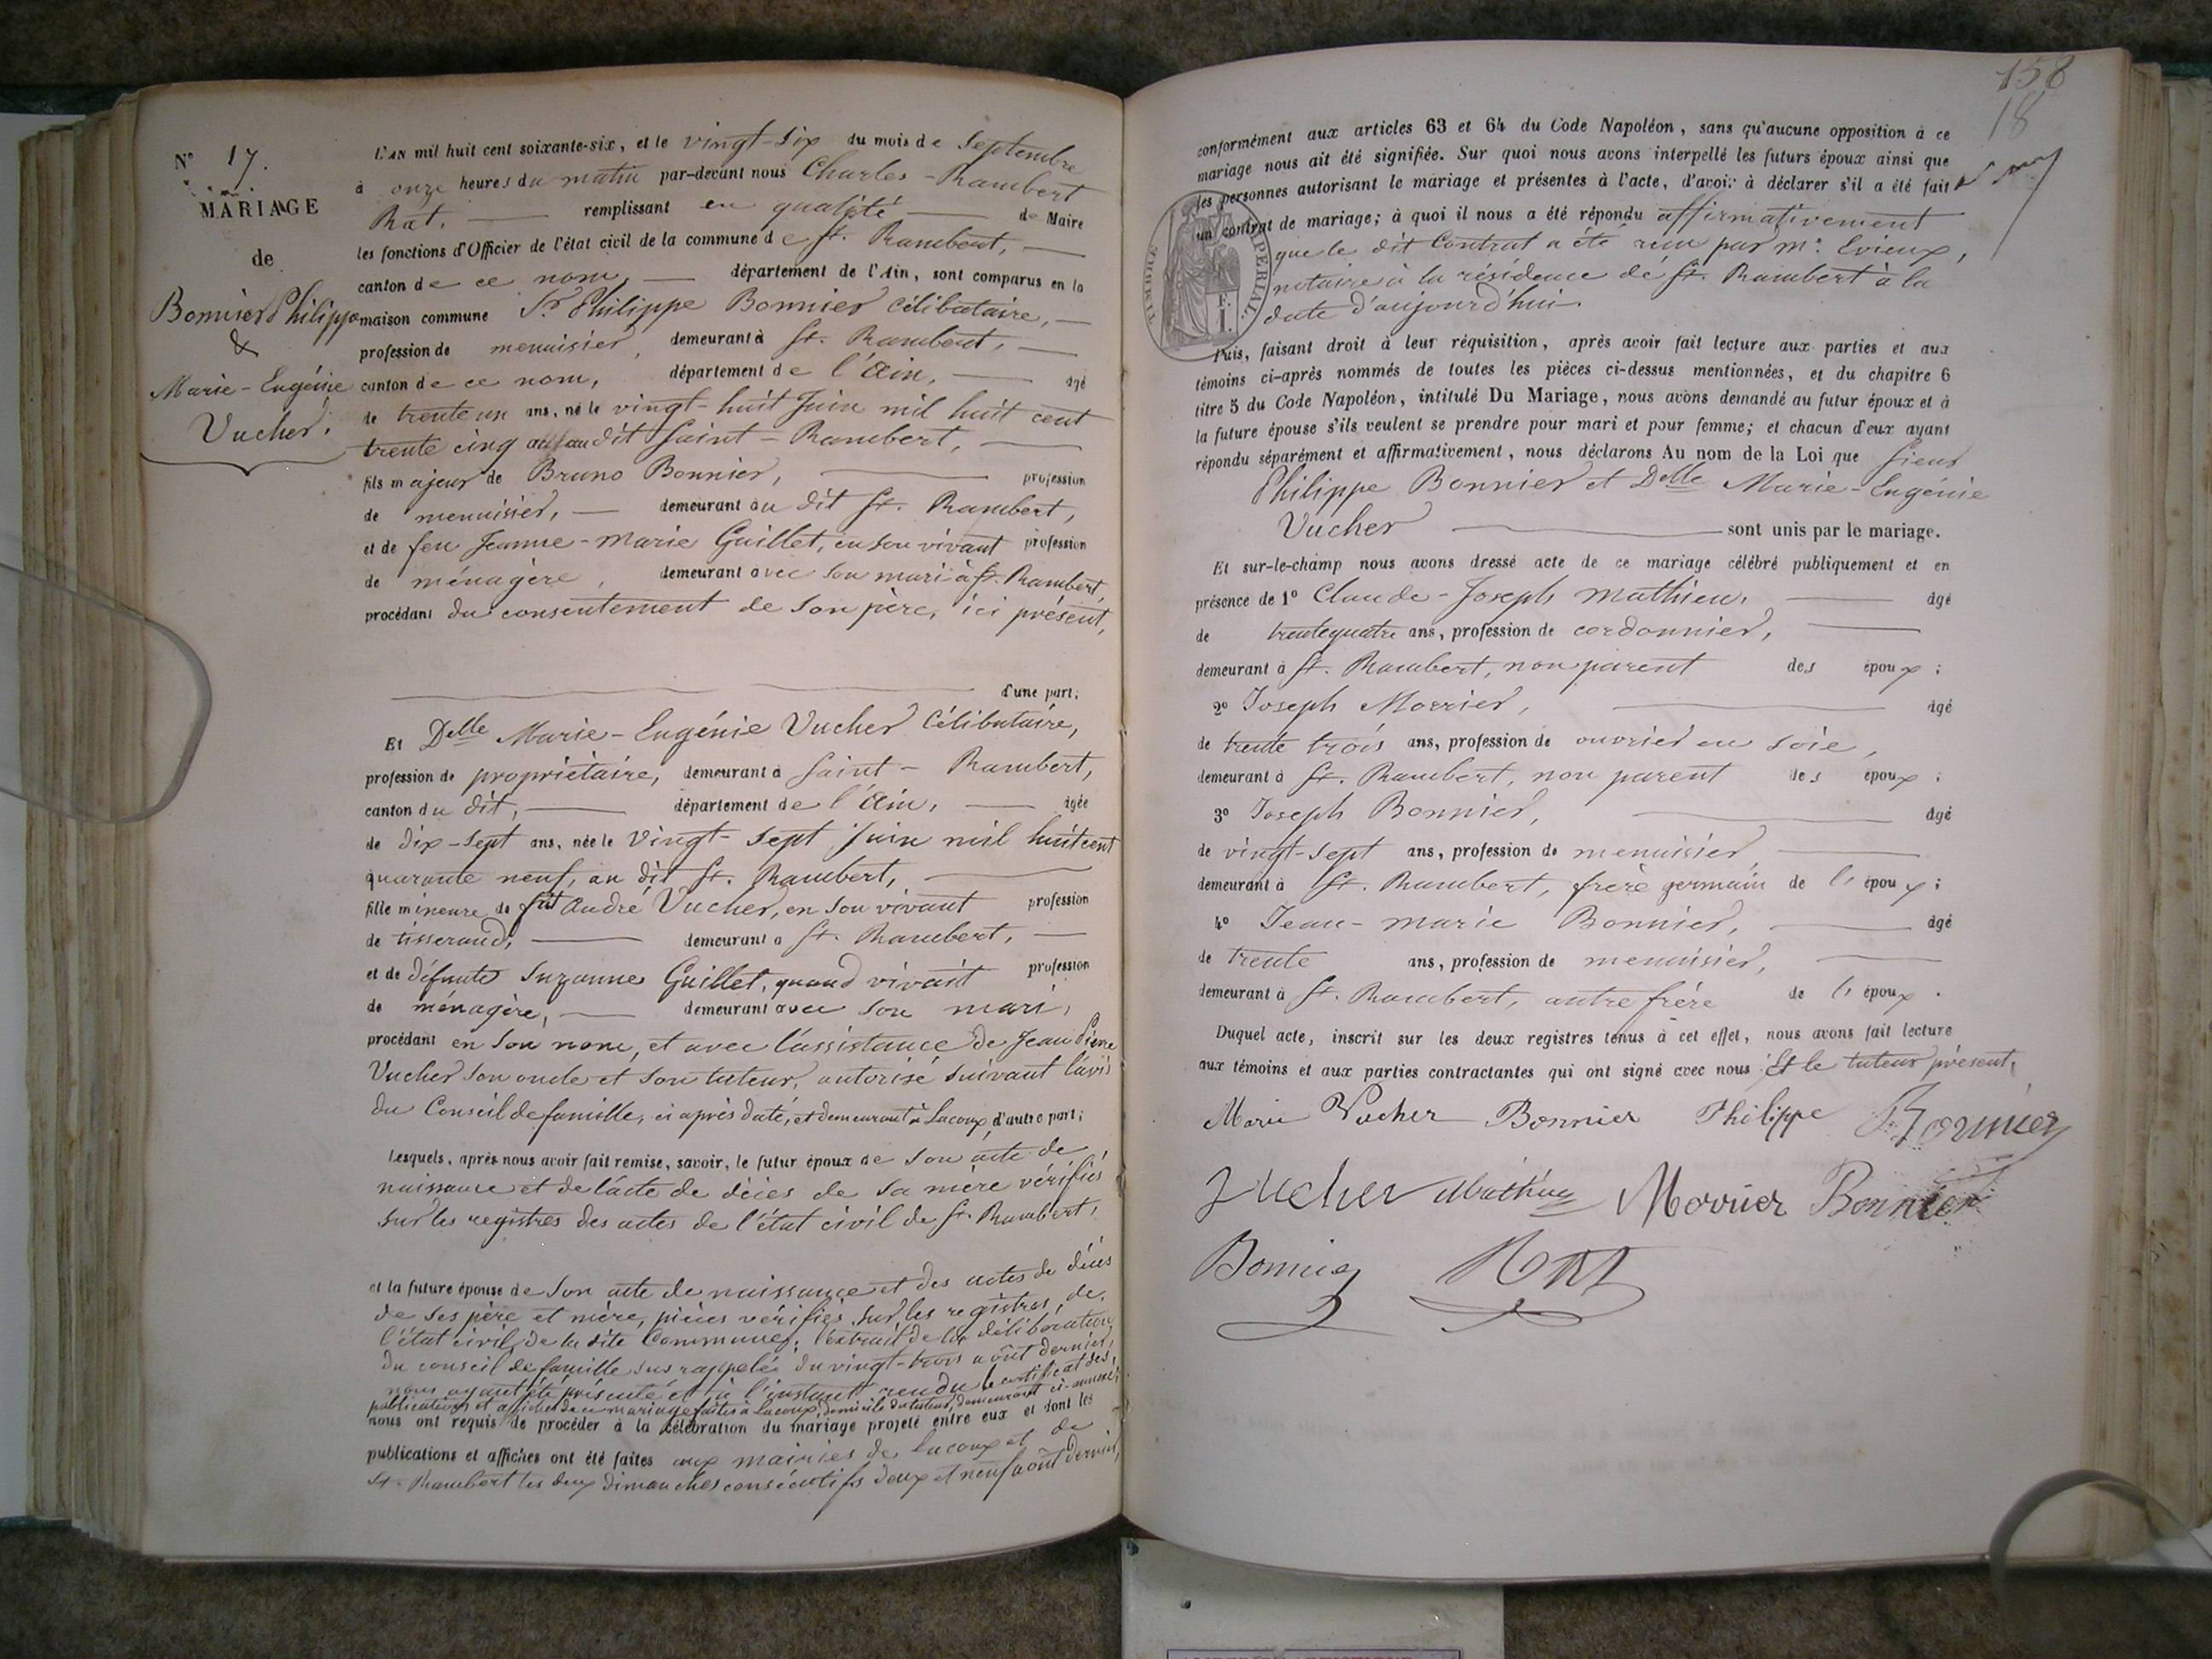 N° 17.
MARIAGE
de
Bonnier Philippe
&
Marie-Eugénie
Vucher.
L'AN mil huit cent soixante-six, et le vingt-six du mois de Septembre
à onze heures du matin par-devant nous Charles-Rambert
Rat. remplissant en qualité de Maire
les fonctions d'Officier de l'état civil de la commune de St. Rambert,
canton de ce nom, département de l'Ain, sont comparus en la
maison commune Sr. Philippe Bonnier Célibataire,
profession de menuisier, demeurant à St. Rambert,
canton de ce nom, département de l'Ain, âgé
de trente un ans, né le vingt-huit Juin mil huit cent
trente cinq au dit Saint-Rambert,
fils majeur de Bruno Bonnier, profession
de menuisier, demeurant au dit St. Rambert,
et de feu Jeanne-Marie Guillet, en son vivant profession
de ménagère, demeurant avec son mari à St. Rambert,
procédant du consentement de son père, ici présent,
d'une part;
Et Delle Marie-Eugénie Vucher Célibataire,
profession de propriétaire, demeurant à Saint-Rambert,
canton du dit, département de l'Ain, âgée
de dix-sept ans, née le Vingt-sept Juin mil huit cent
quarante neuf, au dit St. Rambert,
fille mineure de André Vucher, en son vivant profession
de tisserand, demeurant à St. Rambert,
et de défunte Suzanne Guillet, quand vivait profession
de ménagère, demeurant avec son mari,
procédant en son nom, et avec l'assistance de Jean Pierre
Vucher son oncle et son tuteur, autorisé suivant l'avis
du Conseil de famille, ci après daté, et demeurant à Lacoux, d'autre part;
Lesquels, après nous avoir fait remise, savoir, le futur époux de son acte de
naissance et de l'acte de décès de sa mère vérifiés
sur les registres des actes de l'état civil de St. Rambert,
et la future épouse de son acte de naissance et des actes de décès
de ses père et mère, pièces vérifiés sur les registres de
l'état civil de la dite Commune; l'extrait de la délibération
du conseil de famille sus rappelé du vingt-trois août dernier,
nous ayant été présenté et à l'instant rendu le certificat des
publications et affiches de ce mariage faites à Lacoux, domicile du tuteur, demeurant ci-annexé;
nous ont requis de procéder à la célébration du mariage projeté entre eux et dont les
publications et affiches ont été faites aux mairies de Lacoux et de
St. Rambert les deux dimanches consécutifs deux et neuf août dernier,
158
18
conformément aux articles 63 et 64 du Code Napoléon, sans qu'aucune opposition à ce
mariage nous ait été signifiée. Sur quoi nous avons interpellé les futurs époux ainsi que
les personnes autorisant le mariage et présentes à l'acte, d'avoir à déclarer s'il a été fait
un contrat de mariage; à quoi il nous a été répondu affirmativement
que le dit Contrat a été reçu par Me. Evieux,
notaire à la résidence de St. Rambert à la
date d'aujourd'hui
TIMBRE IMPÉRIAL
Puis, faisant droit à leur réquisition, après avoir fait lecture aux parties et aux
témoins ci-après nommés de toutes les pièces ci-dessus mentionnées, et du chapitre 6
titre 5 du Code Napoléon, intitulé Du Mariage, nous avons demandé au futur époux et à
la future épouse s'ils veulent se prendre pour mari et pour femme; et chacun d'eux ayant
répondu séparément et affirmativement, nous déclarons Au nom de la Loi que Sieur
Philippe Bonnier et Delle Marie-Eugénie
Vucher sont unis par le mariage.
Et sur-le-champ nous avons dressé acte de ce mariage célébré publiquement et en
présence de 1° Claude-Joseph Mathieu, âgé
de trente quatre ans, profession de cordonnier,
demeurant à St. Rambert, non parent des époux;
2° Joseph Morrier, âgé
de trente trois ans, profession de ouvrier en soie,
demeurant à St. Rambert, non parent des époux;
3° Joseph Bonnier, âgé
de vingt-sept ans, profession de menuisier
demeurant à St. Rambert, frère germain de l'époux;
4° Jean-Marie Bonnier, âgé
de trente ans, profession de menuisier,
demeurant à St. Rambert, autre frère de l'époux.
Duquel acte, inscrit sur les deux registres tenus à cet effet, nous avons fait lecture
aux témoins et aux parties contractantes qui ont signé avec nous Et le tuteur présent.
Marie Vucher Bonnier Philippe Bonnier
Vucher Mathieu Morrier Bonnier
Bonnier Rat